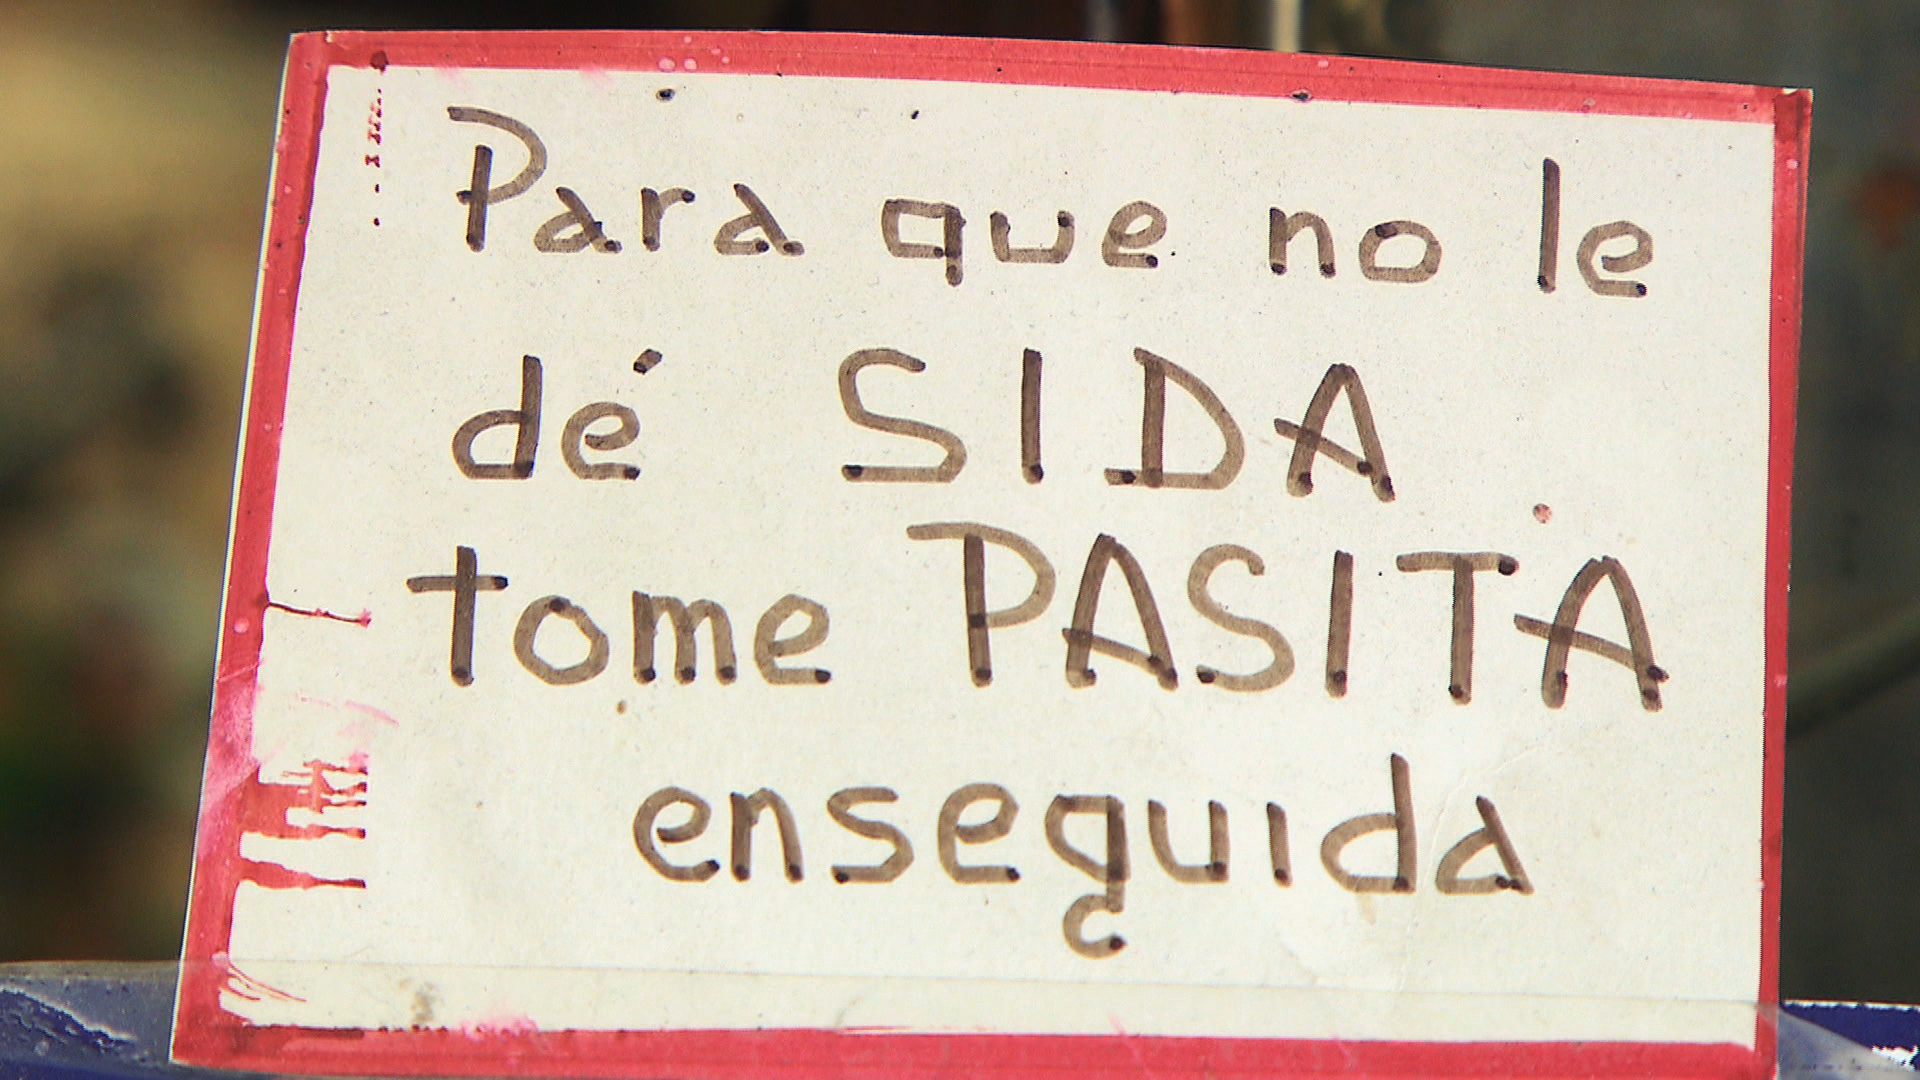 Para que no le
dé SIDA
tome PASITA
enseguida